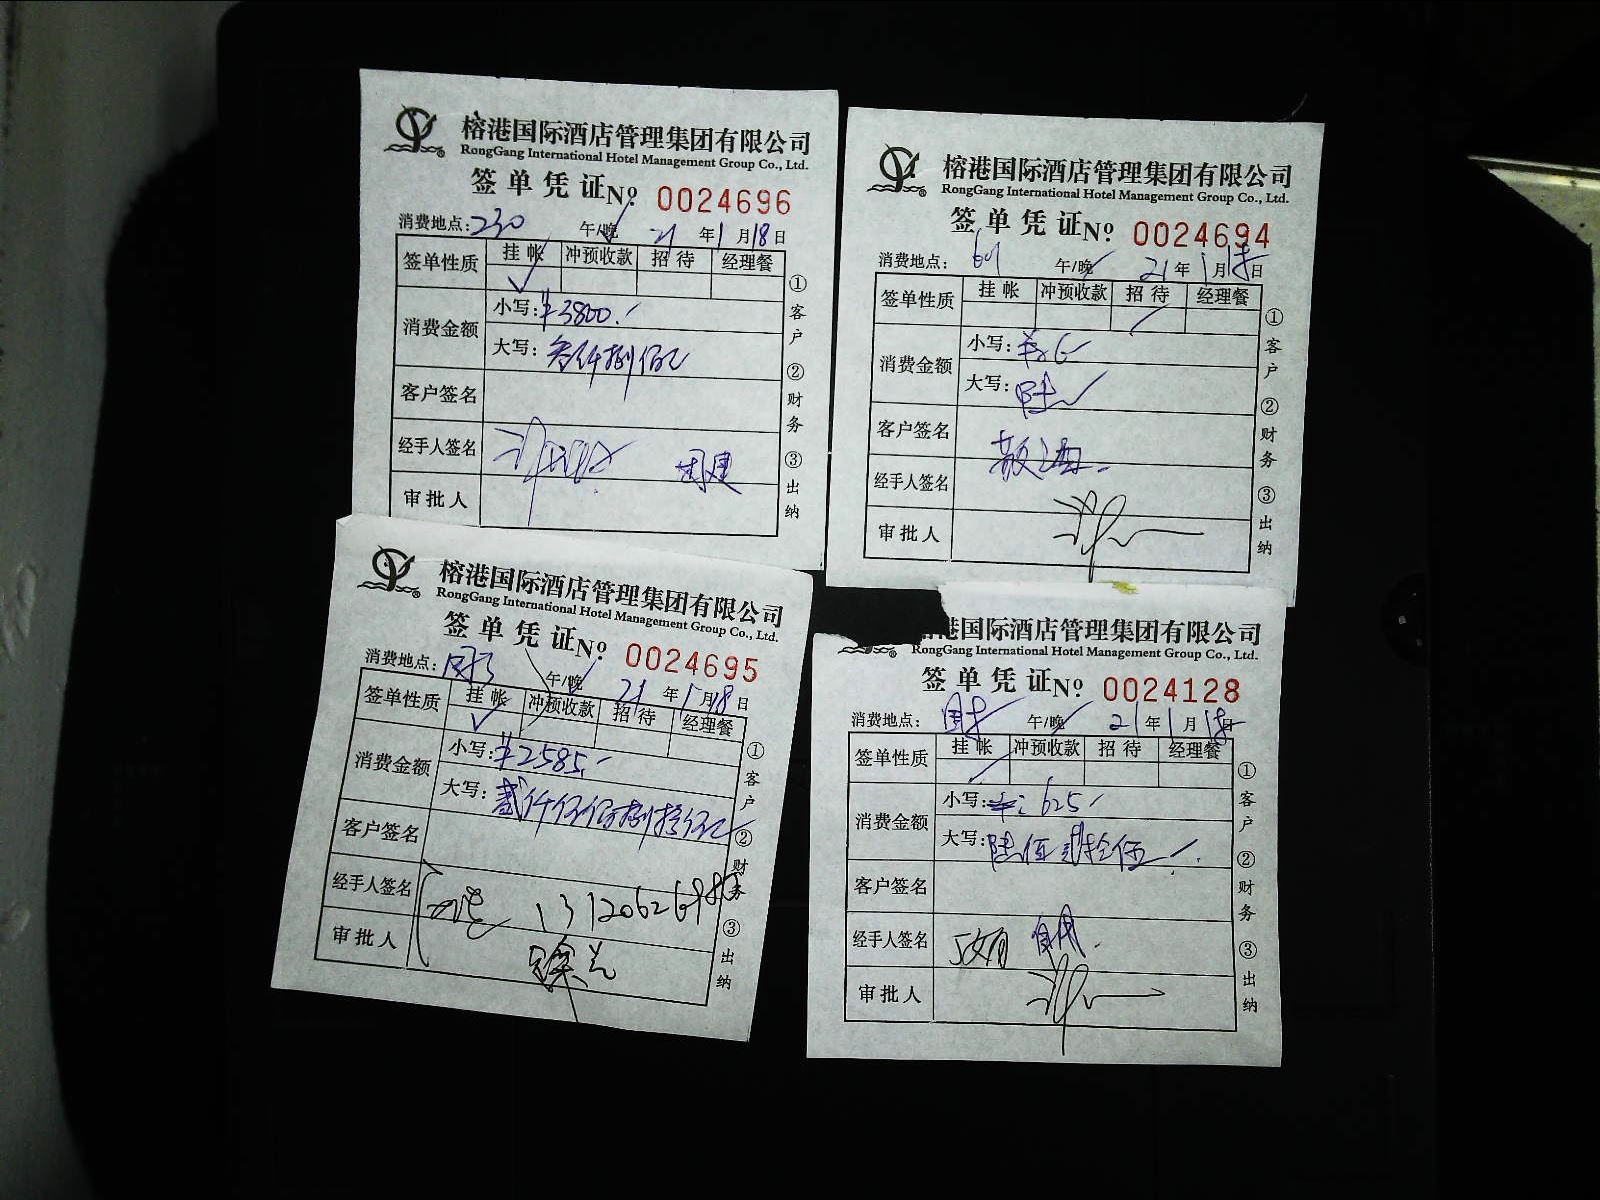 榕港国际酒店管理集团有限公司
RongGang International Hotel Management Group Co., Ltd.
签单凭证 No. 0024696
消费地点: 230 午/晚 21年1月18日
签单性质 挂帐 冲预收款 招待 经理餐
消费金额 小写: ¥3800.
大写: 叁仟捌佰元
客户签名
经手人签名
审批人
①客户 ②财务 ③出纳
榕港国际酒店管理集团有限公司
RongGang International Hotel Management Group Co., Ltd.
签单凭证 No. 0024694
消费地点: 午/晚 21年1月18日
签单性质 挂帐 冲预收款 招待 经理餐
消费金额 小写:
大写:
客户签名
经手人签名
审批人
①客户 ②财务 ③出纳
榕港国际酒店管理集团有限公司
RongGang International Hotel Management Group Co., Ltd.
签单凭证 No. 0024695
消费地点: 午/晚 21年1月18日
签单性质 挂帐 冲预收款 招待 经理餐
消费金额 小写: ¥2585.
大写: 贰仟伍佰捌拾伍元
客户签名
经手人签名
审批人
①客户 ②财务 ③出纳
港国际酒店管理集团有限公司
RongGang International Hotel Management Group Co., Ltd.
签单凭证 No. 0024128
消费地点: 午/晚 21年1月18日
签单性质 挂帐 冲预收款 招待 经理餐
消费金额 小写: 625
大写: 陆佰贰拾伍
客户签名
经手人签名
审批人
①客户 ②财务 ③出纳